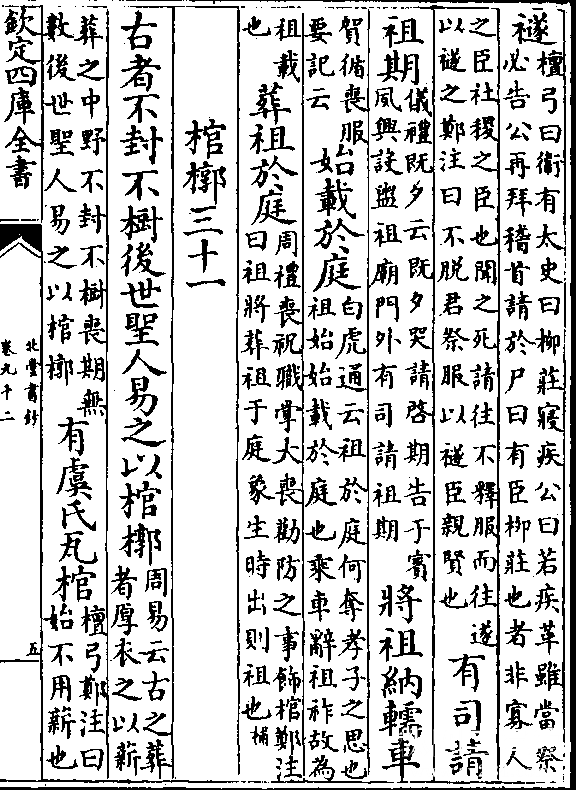 襚檀弓曰衛有太史曰柳莊寢疾公曰若疾革雖當祭
必告公再拜稽首請於尸曰有臣柳莊也者非寡人
之臣社稷之臣也聞之死請往不釋服而往遂
以襚之鄭注曰不脱君祭服以襚臣親賢也
有司請
祖期儀禮既夕云既夕哭請啓期告于賓
夙興設盥祖廟門外有司請祖期
將祖納轜車
賀循喪服
要記云
始載於庭白虎通云祖於庭何奪孝子之思也
祖始始載於庭也乘車辭祖祚故為
祖載
也
葬祖於庭周禮喪祝職掌大喪勸防之事飾棺鄭注
曰祖將葬祖于庭象生時出則祖也補
棺槨三十一
古者不封不樹後世聖人易之以棺槨周易云古之葬
者厚衣之以薪
葬之中野不封不樹喪期無
數後世聖人易之以棺槨
有虞氏瓦棺檀弓鄭注曰
始不用薪也
欽定四庫全書
北堂書鈔
卷九十二
五